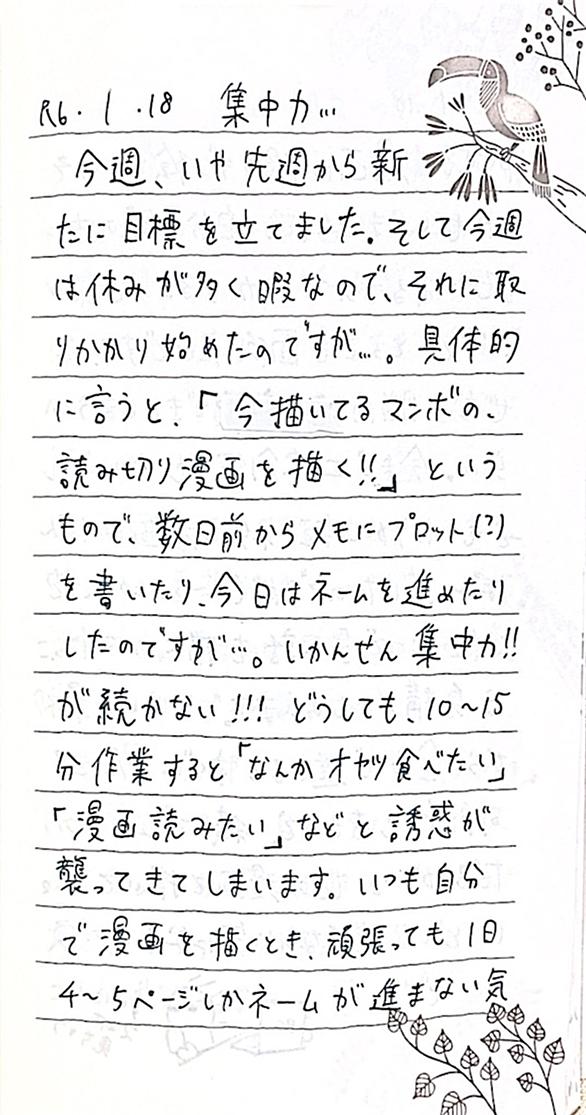 R6.1.18 集中力…
今週、いや先週から新
たに目標を立てました。そして今週
は休みが多く暇なので、それに取
りかかり始めたのですが…。具体的
に言うと、「今描いてるマンボの、
読み切り漫画を描く!!」という
もので、数日前からメモにプロット(?)
を書いたり、今日はネームを進めたり
したのですが…。いかんせん集中力!!
が続かない!!! どうしても、10~15
分作業すると「なんかオヤツ食べたい」
「漫画読みたい」などと誘惑が
襲ってきてしまいます。いつも自分
で漫画を描くとき、頑張っても1日
4~5ページしかネームが進まない気